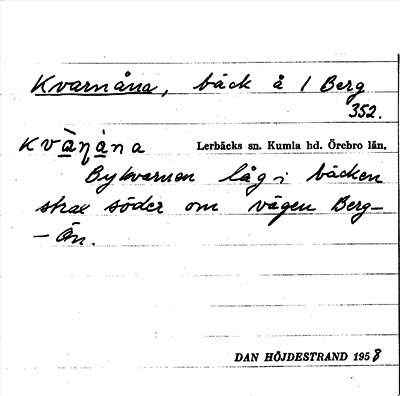 Kvarnåna, bäck å 1 Berg
352.
kvàṇàna Lerbäcks sn. Kumla hd. Örebro län.
Bykvarnen låg i bäcken
strax söder om vägen Berg–
– Ån.
DAN HÖJDESTRAND 1958